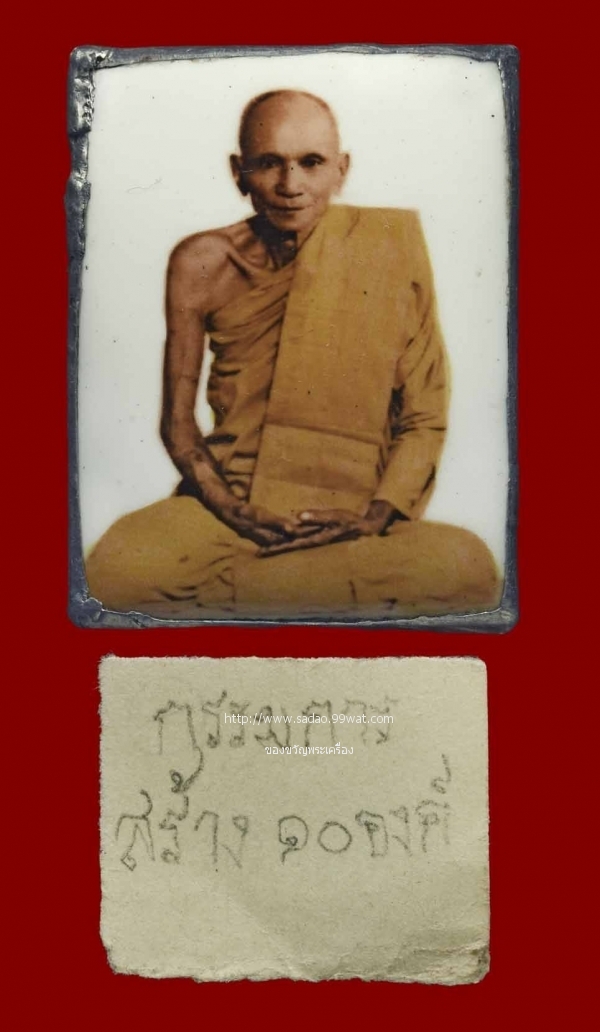 กรรมการ
http://www.sadao.99wat.com
ของขวัญพระเครื่อง
สร้าง ๑๐ องค์